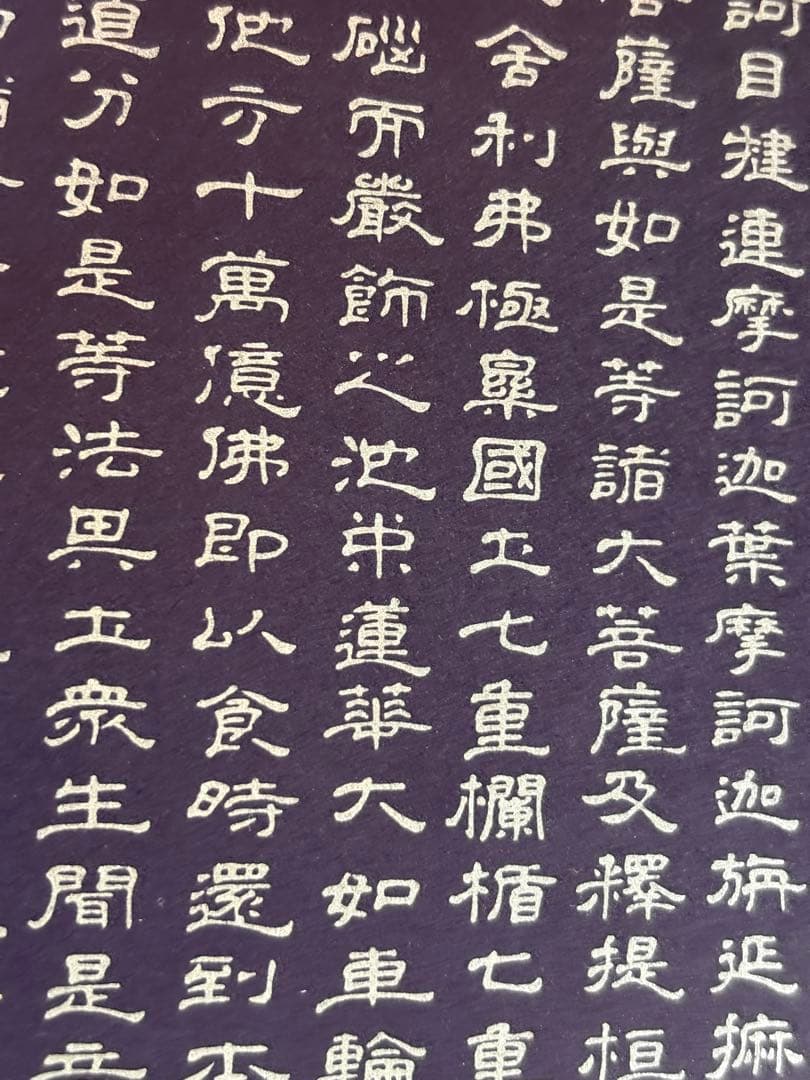 訶目犍連摩訶迦葉摩訶迦旃延摩
菩薩與如是等諸大菩薩及釋提桓
舍利弗極樂國土七重欄楯七重
而嚴飾之池中蓮華大如車輪
他方十萬億佛即以食時還到本
道分如是等法其土眾生聞是音